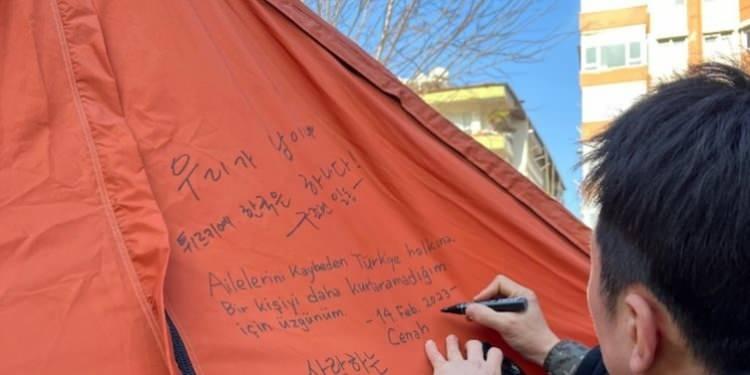 우리가 남이가
튀르키예 한국은 하나다!
Ailelerini kaybeden Türkiye halkına
Bir kişiyi daha kurtaramadığım
için üzgünüm.
-14 Feb. 2023-
Cenah
사랑하는